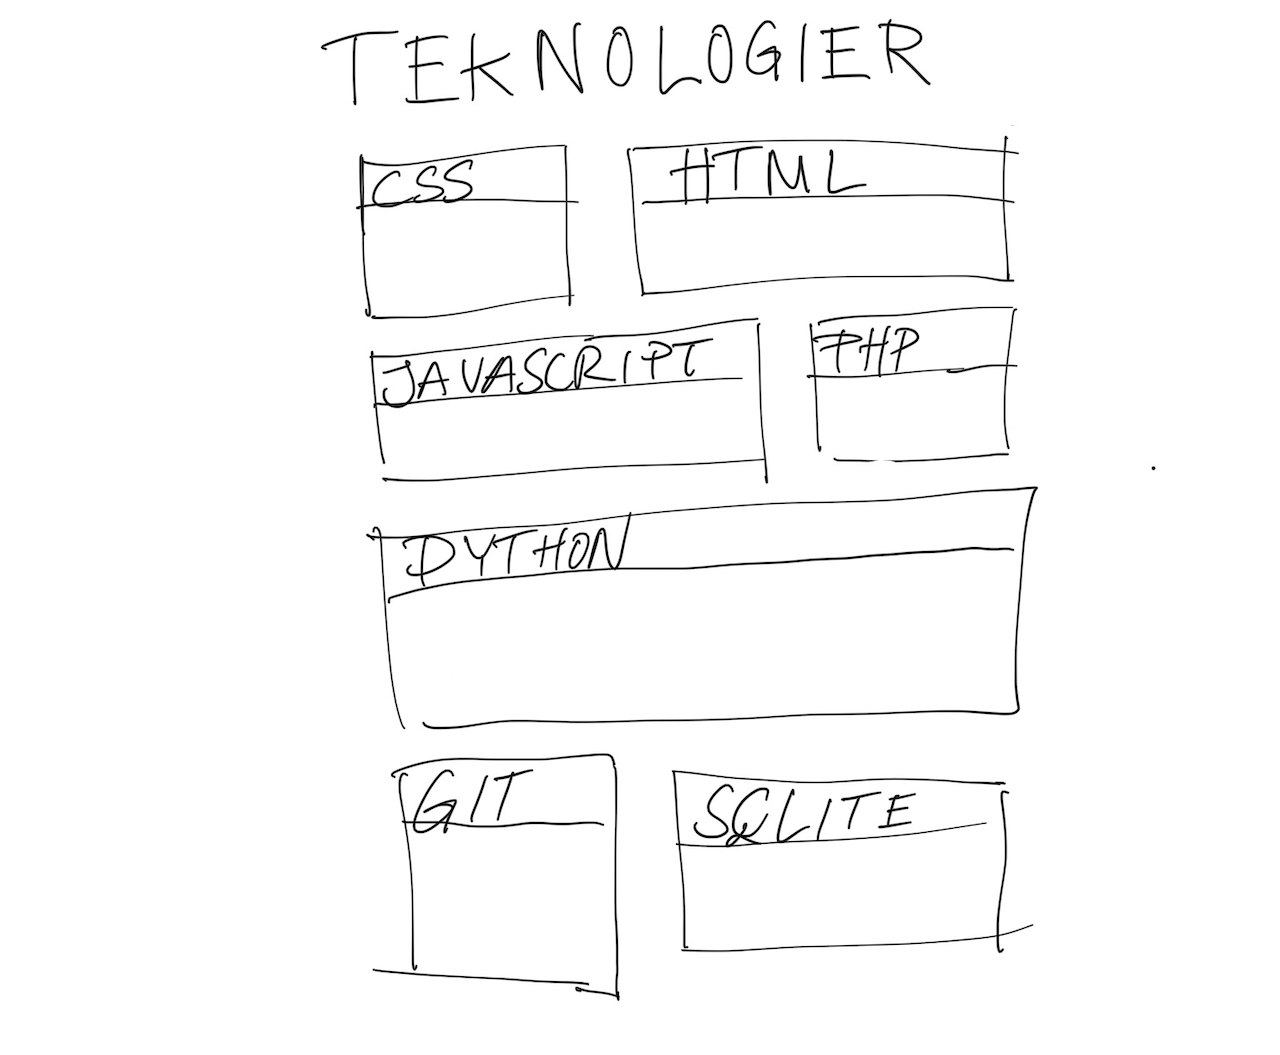 TEKNOLOGIER
CSS
HTML
JAVASCRIPT
PHP
PYTHON
GIT
SQLITE